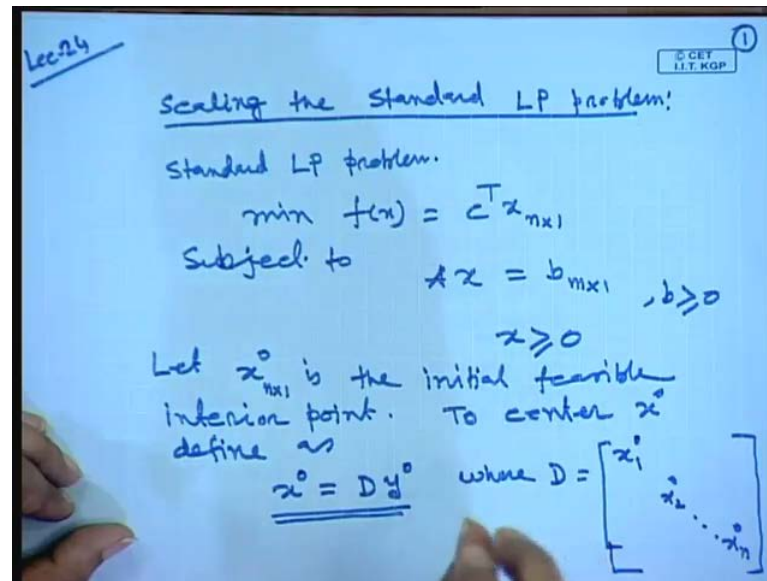 Lec-24
1
© CET
I.I.T. KGP
Scaling the Standard LP problem:
Standard LP problem.
min f(x) = c^T x_{n×1}
Subject. to
A x = b_{m×1} , b ≥ 0
x ≥ 0
Let x^0_{n×1} is the initial feasible
interior point. To center x^0
define as
x^0 = D y^0 where D = [x_1^0 x_2^0 ... x_n^0]